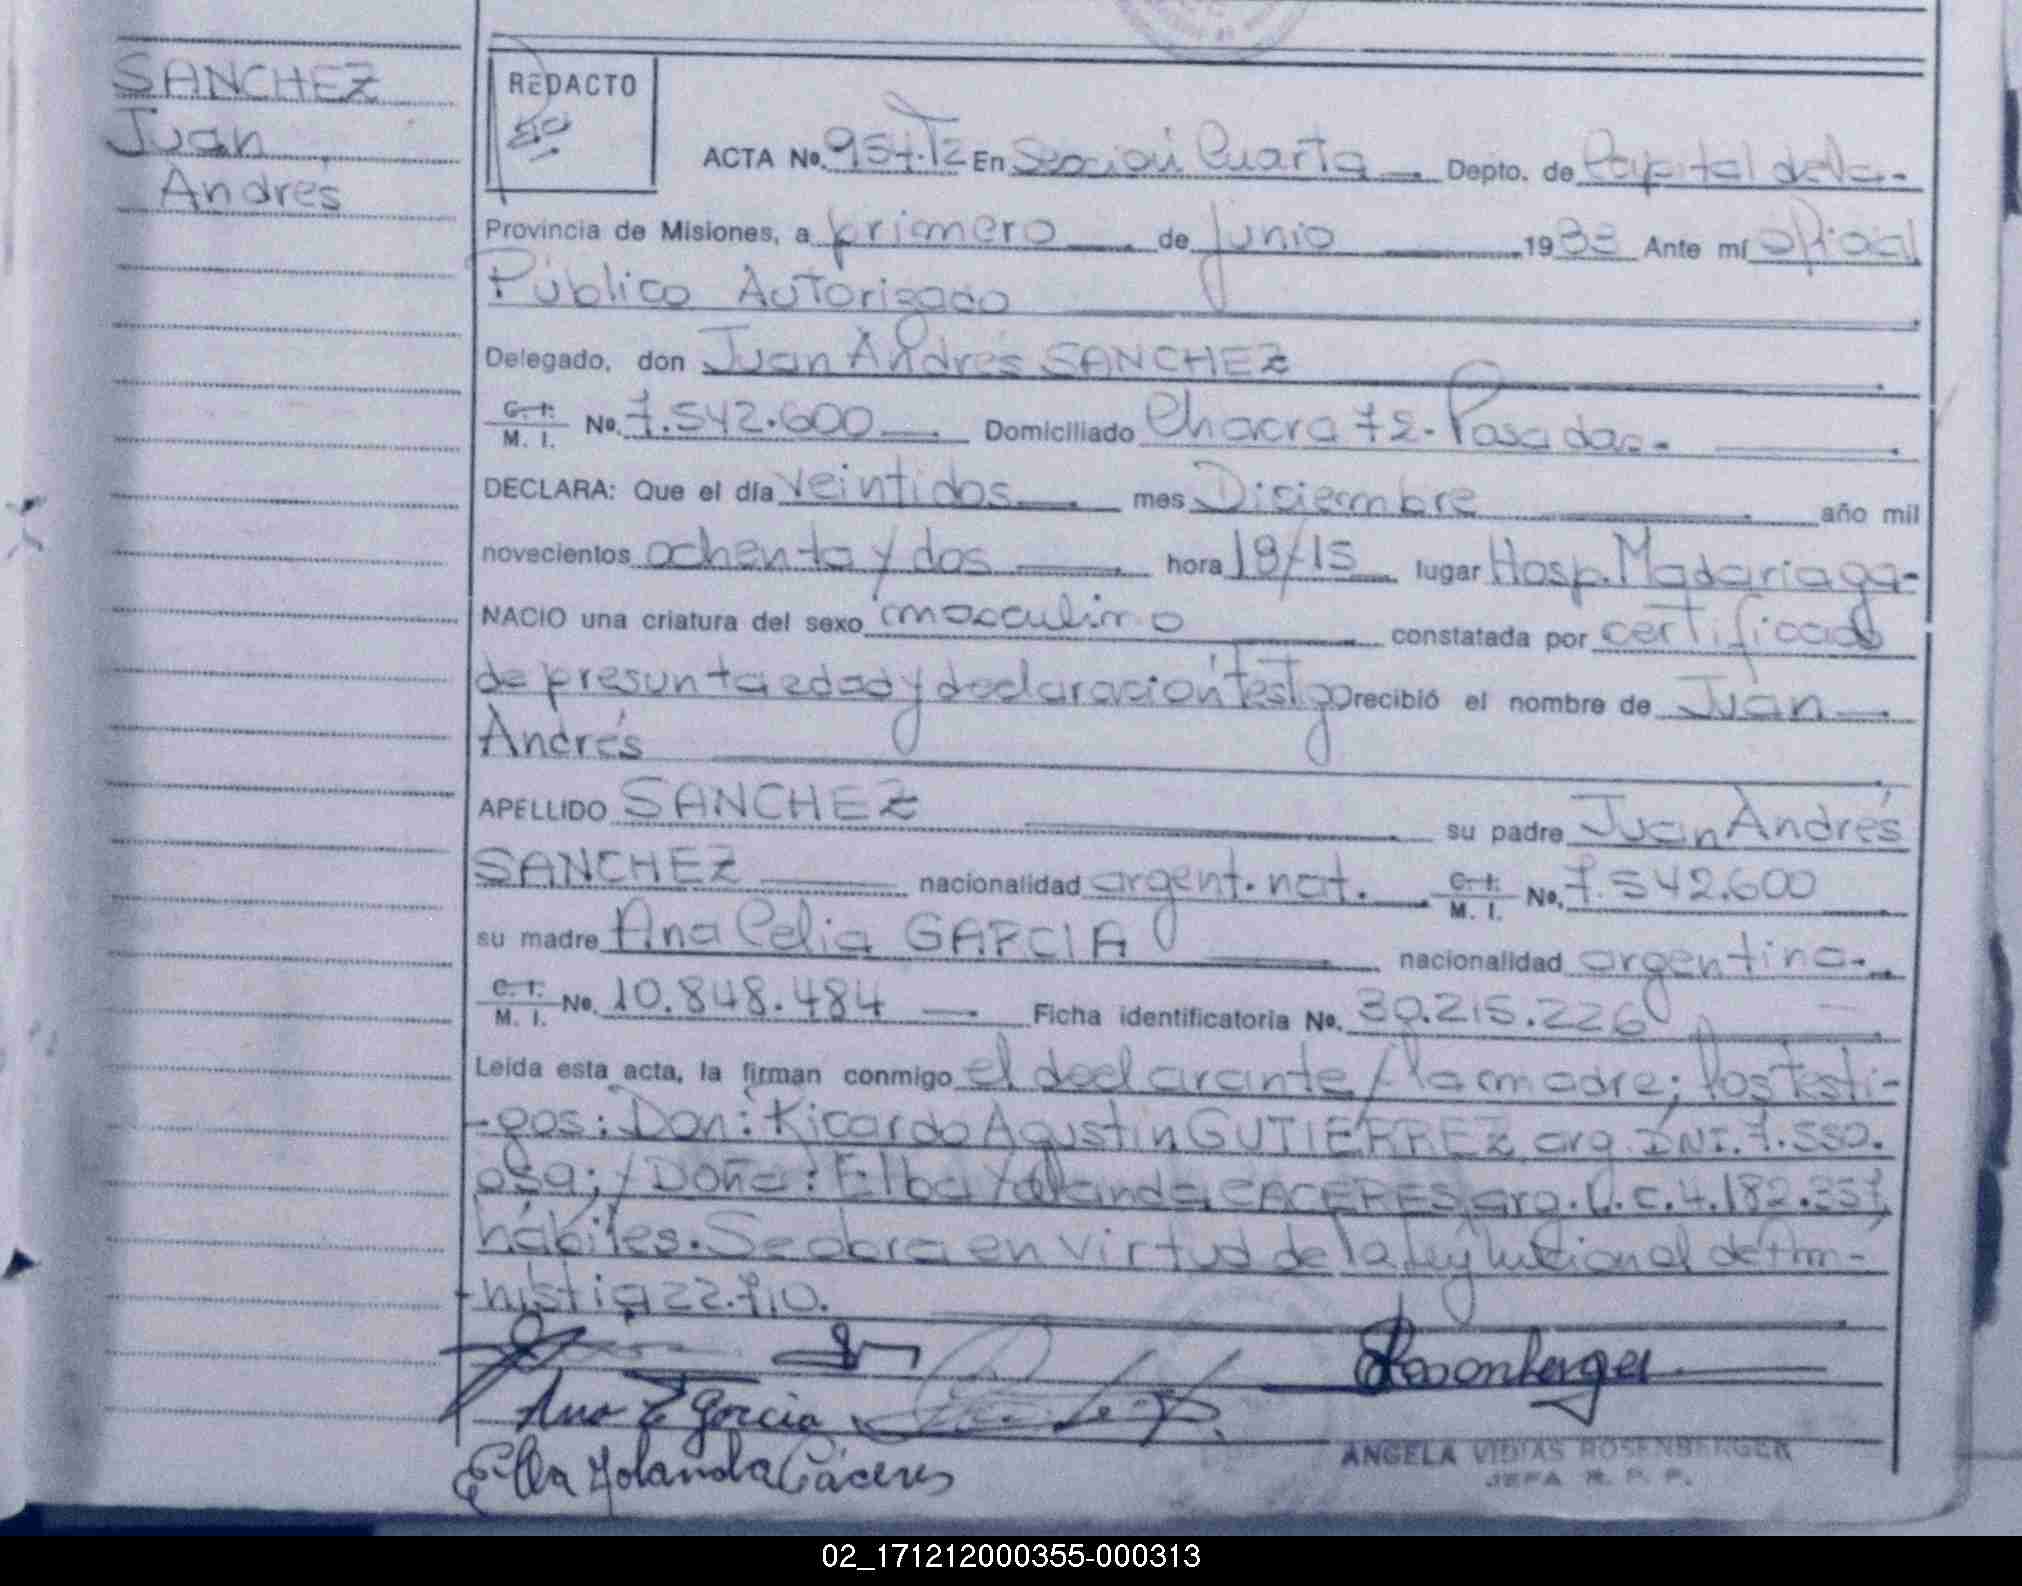 SANCHEZ
Juan
Andrés
REDACTO
ACTA No. 954. T2 En Sección Cuarta Depto. de Capital de la
Provincia de Misiones, a primero de junio 1983 Ante mí oficial
Público Autorizado
Delegado, don Juan Andrés SANCHEZ
C. I. M. I. No. 7.542.600 Domiciliado Chacra 72. Posadas.
DECLARA: Que el día veintidos mes Diciembre año mil
novecientos ochenta y dos hora 18/15 lugar Hosp. Madariaga-
NACIO una criatura del sexo masculino constatada por certificado
de presunta edad y declaración testigo recibió el nombre de Juan
Andrés
APELLIDO SANCHEZ su padre Juan Andrés
SANCHEZ nacionalidad argent. nat. C. I. M. I. No. 7.542.600
su madre Ana Celia GARCIA nacionalidad argentina.
C. I. M. I. No. 10.848.484 Ficha identificatoria No. 30.215.226
Leida esta acta, la firman conmigo el declarante / la madre; los testi-
-gos: Don: Ricardo Agustin GUTIERREZ, arg. DNI. 7.550.
059; / Doña: Elba Yolanda CACERES arg. L.C. 4.182.357,
hábiles. Se labra en virtud de la ley nacional de Am-
-nistia 22.710.
Ana C Garcia
Elba Yolanda Cáceres
Rosenberger
ANGELA VIDIAS ROSENBERGER
JEFA R. P. P.
02_171212000355-000313